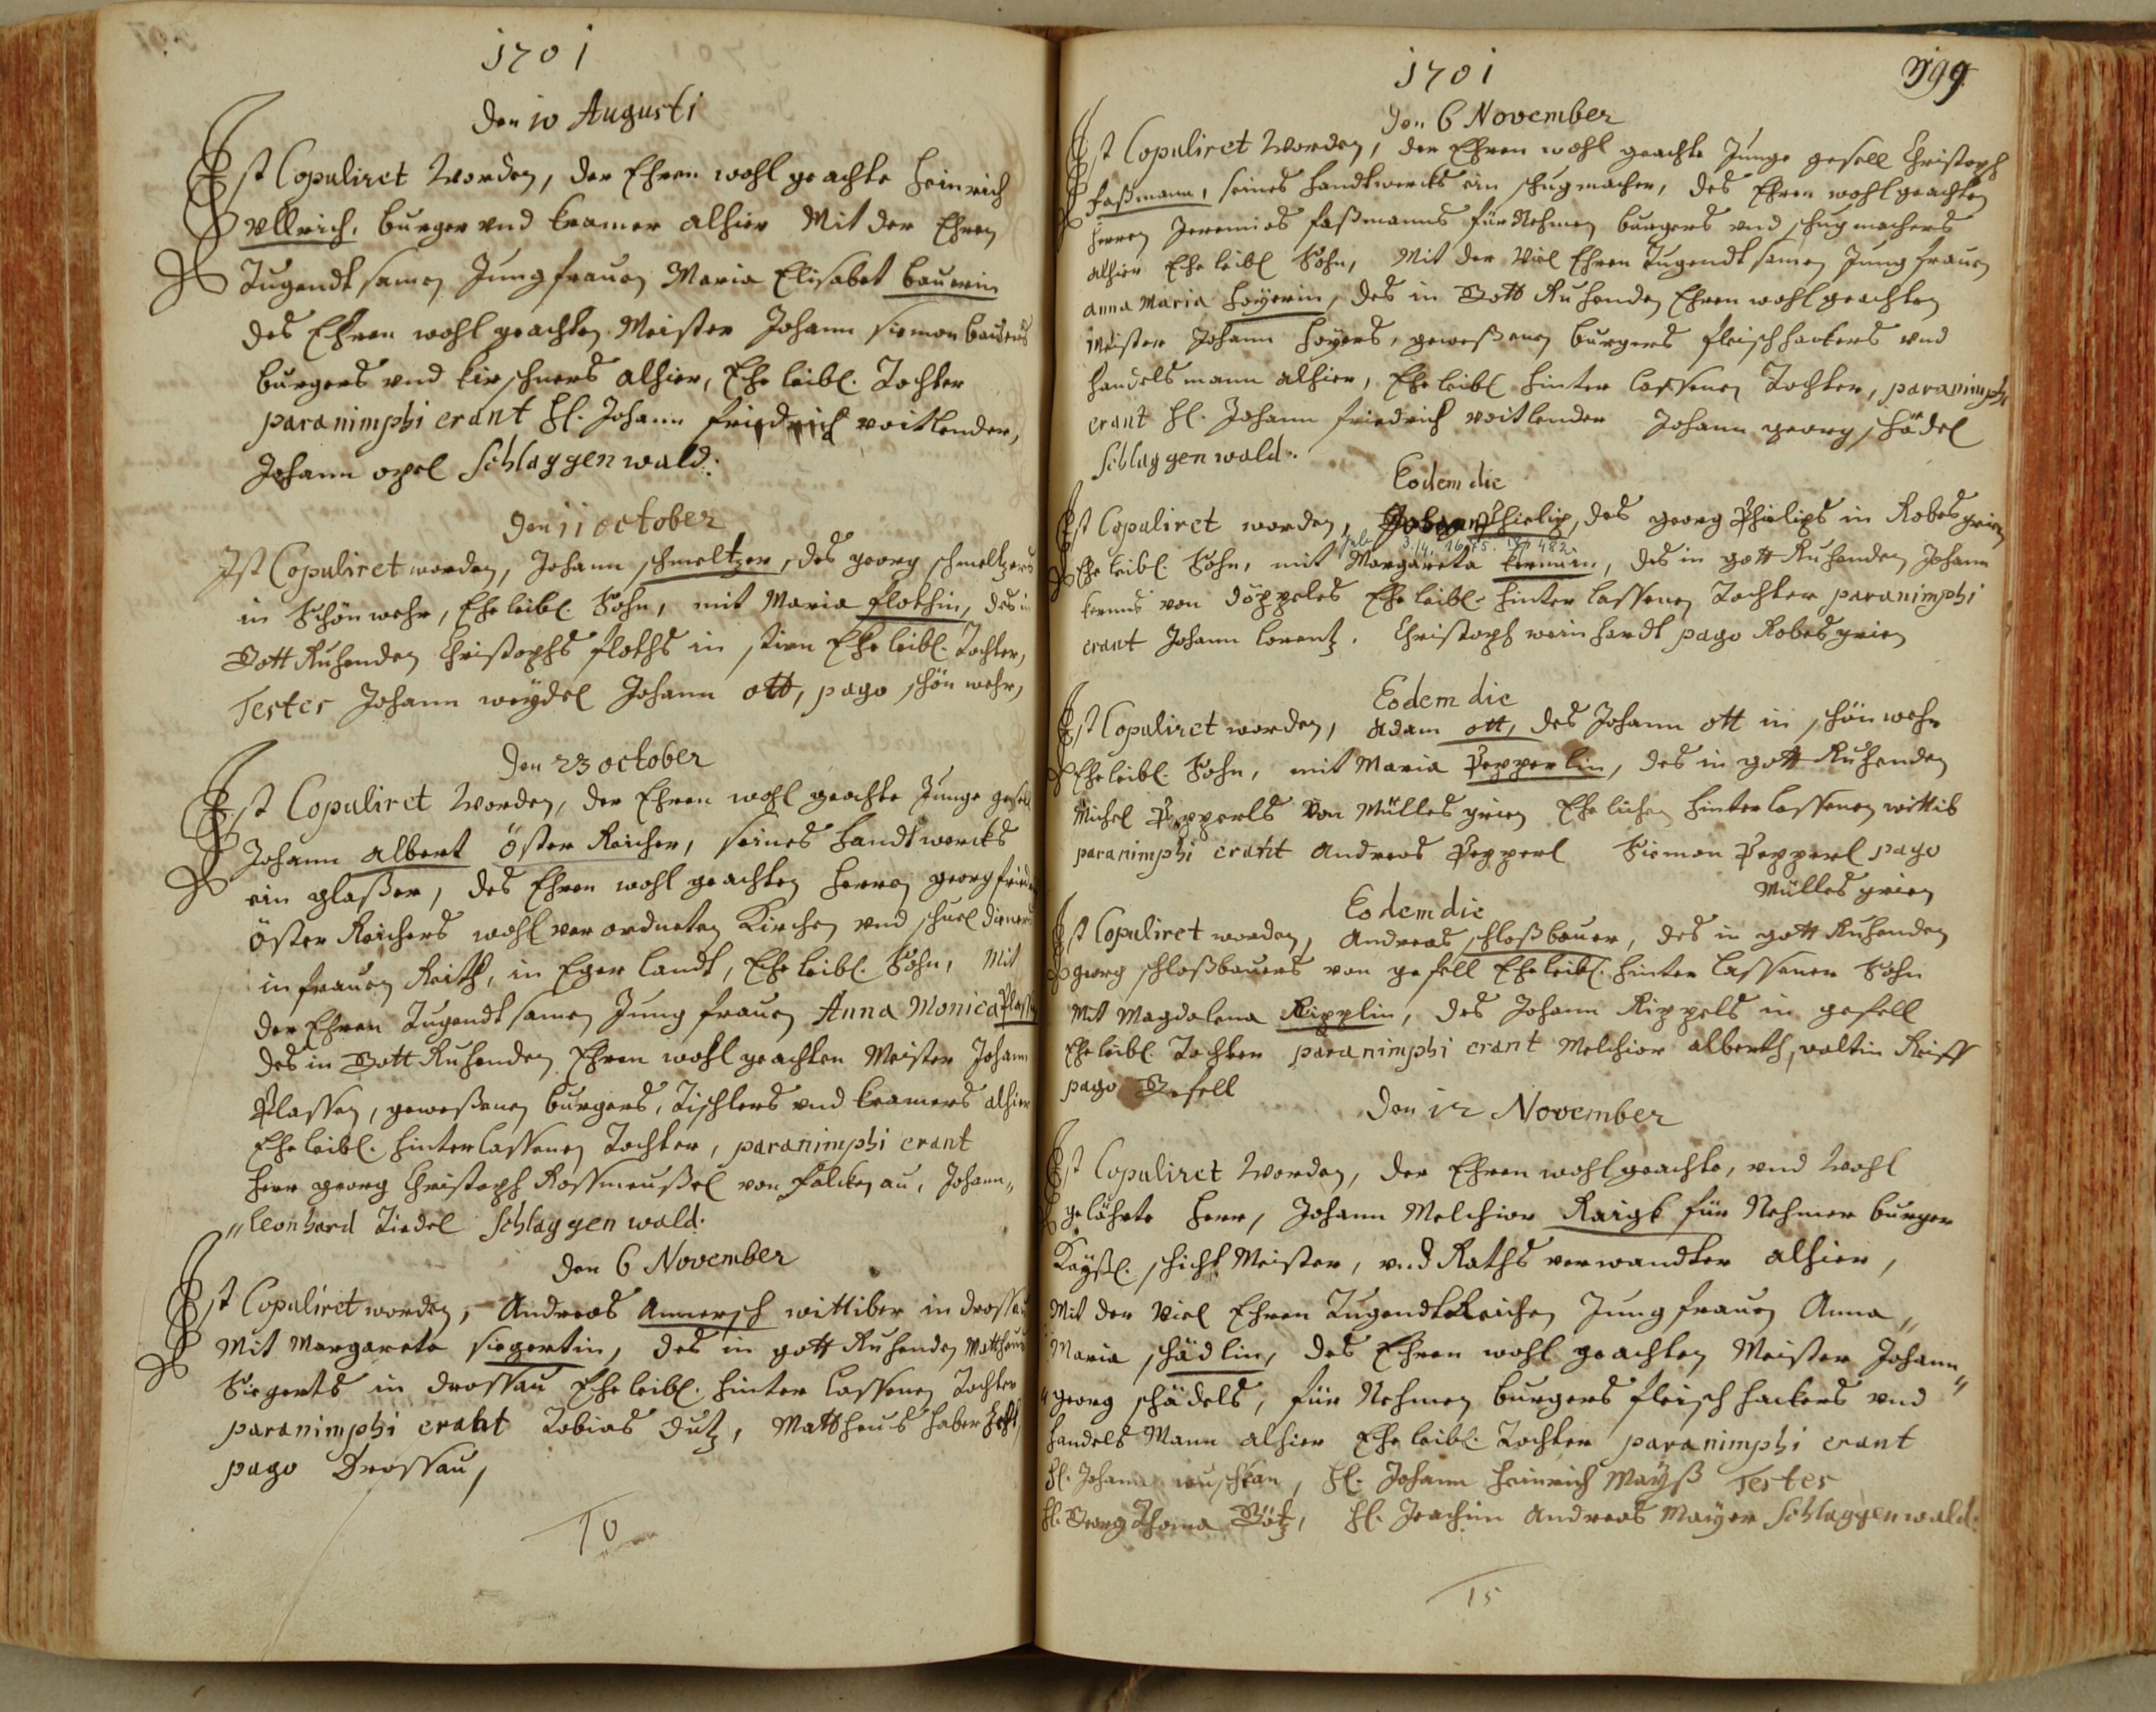 1701
den 10 Augusti
Ist Copuliret Worden, der Ehren wohl geachte Heinrich
Ullrich, burger und kramer alhier Mit der Ehren
Tugendtsamen Jungfrauen Maria Elisabet bauerin
des Ehren wohl geachten Meister Johann Siemon bauers
burgers und kirschners alhier, Ehe leibl. Tochter
paranimphi erant H. Johann Friedrich voitlender,
Johann opel Schlaggenwald.
den 11 october
Ist Copuliret worden, Johann schmeltzer, des georg schmeltzers
in Schönwehr, Ehe leibl. Sohn, mit Maria flothin, des in
Gott Ruhenden Christophs floths in stirn Ehe leibl. Tochter,
Testes Johann weydel Johann ott, pago schön wehr,
den 23 october
Ist Copuliret Worden, der Ehren wohl geachte Junge gesel
Johann albert Öster Reicher, seines Handtwercks
ein glaßer, des Ehren wohl geachten Herren georg fried
Öster Reichers wohl verordneten Kirchen und schuel dieners
in frauen Reith, in Eger landt, Ehe leibl. Sohn, Mit
der Ehren Tugendtsamen Jungfrauen Anna Monica
des in Gott Ruhenden Ehren wohl geachten Meister Johann
Plassen, geweßenen burgers, Tischlers und kramers alhier
Ehe leibl. hinterlassenen Tochter, paranimphi erant
Herr georg Christoph Rossmeußel von Falckenau, Johann„
„leonhard Tiedel Schlaggenwald.
den 6 November
Ist Copuliret worden, Andreas Annersch wittiber in drossau
Mit Margareta siegertin, des in gott Ruhenden Mattheus
Siegerts in drossau Ehe leibl. hinter lassenen Tochter
paranimphi erant Tobias Dutz, Mattheus
pago Drossau,
10
1701
199
den 6 November
Ist Copuliret Worden, der Ehren wohl geachte Junge gesell Christoph
Faßmann, seines Handtwercks ein schugmacher, des Ehren wohlgeachten
Herren Jeremias faßmanns fürNehmen burgers und schugmachers
alhier Ehe leibl Sohn, Mit der Viel Ehren Tugendtsamen Jungfrauen
anna Maria hoyerin, des in Gott Ruhenden Ehren wohlgeachten
Meister Johann Hoyers, geweßenen burgers fleischhackers und
handelsmann alhier, Ehe leibl hinter lassenen Tochter, paranimphi
erant H. Johann friedrich voitlender Johann georg schädel
Schlaggenwald.
Eodem die
Ist Copuliret worden, Johann Phielip, des georg Phielips in Robesgrien
Ehe leibl. Sohn, mit Margareta, des in gott Ruhenden Johann
von döppeles Ehe leibl. hinter lassenen Tochter paranimphi
erant Johann lorentz, Christoph weinhardt pago Robesgrien
Eodem die
Ist Copuliret worden, Adam ott, des Johann ott in schönwehr
Ehe leibl. Sohn, mit Maria Pepperlin, des in gott Ruhenden
Michel Pepperls Von Müllesgrien Ehelichen hinterlassenen wittib
paranimphi erant Andreas Pepperl Siemon Pepperl pago
Müllesgrien
Eodem die
Ist Copuliret worden, Andreas schloßbauer, des in gott Ruhenden
georg schloßbauers von gesell Ehe leibl. hinter lassener Sohn
Mit Magdalena Kipplin, des Johann Kippels in gesell
Ehe leibl. Tochter paranimphi erant Melchior alberth, valtin Reiss
pago Gesell
den 12 November
Ist Copuliret Worden, der Ehren wohlgeachte, und Wohl
gelährte Herr, Johann Melchior fürNehmer burger
Kayßl. schicht Meister, und Raths verwandter alhier,
Mit der Viel Ehren Tugendt Reichen Jungfrauen Anna„
Maria schädlin, des Ehren wohl geachten Meister Johann„
„georg schädels, für Nehmen burgers fleischhackers und
handels Mann alhier Ehe leibl. Tochter paranimphi erant
H. Johann, H. Johann Heinrich Mayß Testes
H. Georg Thoma Götz, H. Joachim Andreas Mayer Schlaggenwald.
15